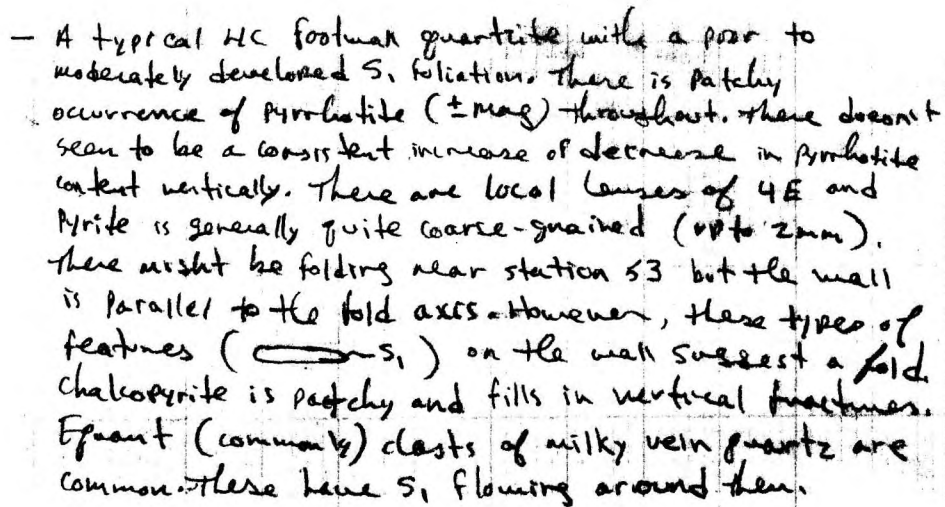 - A typical 4C footwall quartzite with a poor to
moderately developed S₁ foliation. There is patchy
occurrence of pyrrhotite (± mag) throughout. There doesn't
seem to be a consistent increase or decrease in pyrrhotite
content vertically. There are local lenses of 4E and
pyrite is generally quite coarse-grained (up to 2mm).
There might be folding near station 53 but the wall
is parallel to the fold axis. However, these types of
features ( S₁) on the wall suggest a fold.
Chalcopyrite is patchy and fills in vertical fractures.
Equant (commonly) clasts of milky vein quartz are
common. These have S₁ flowing around them.